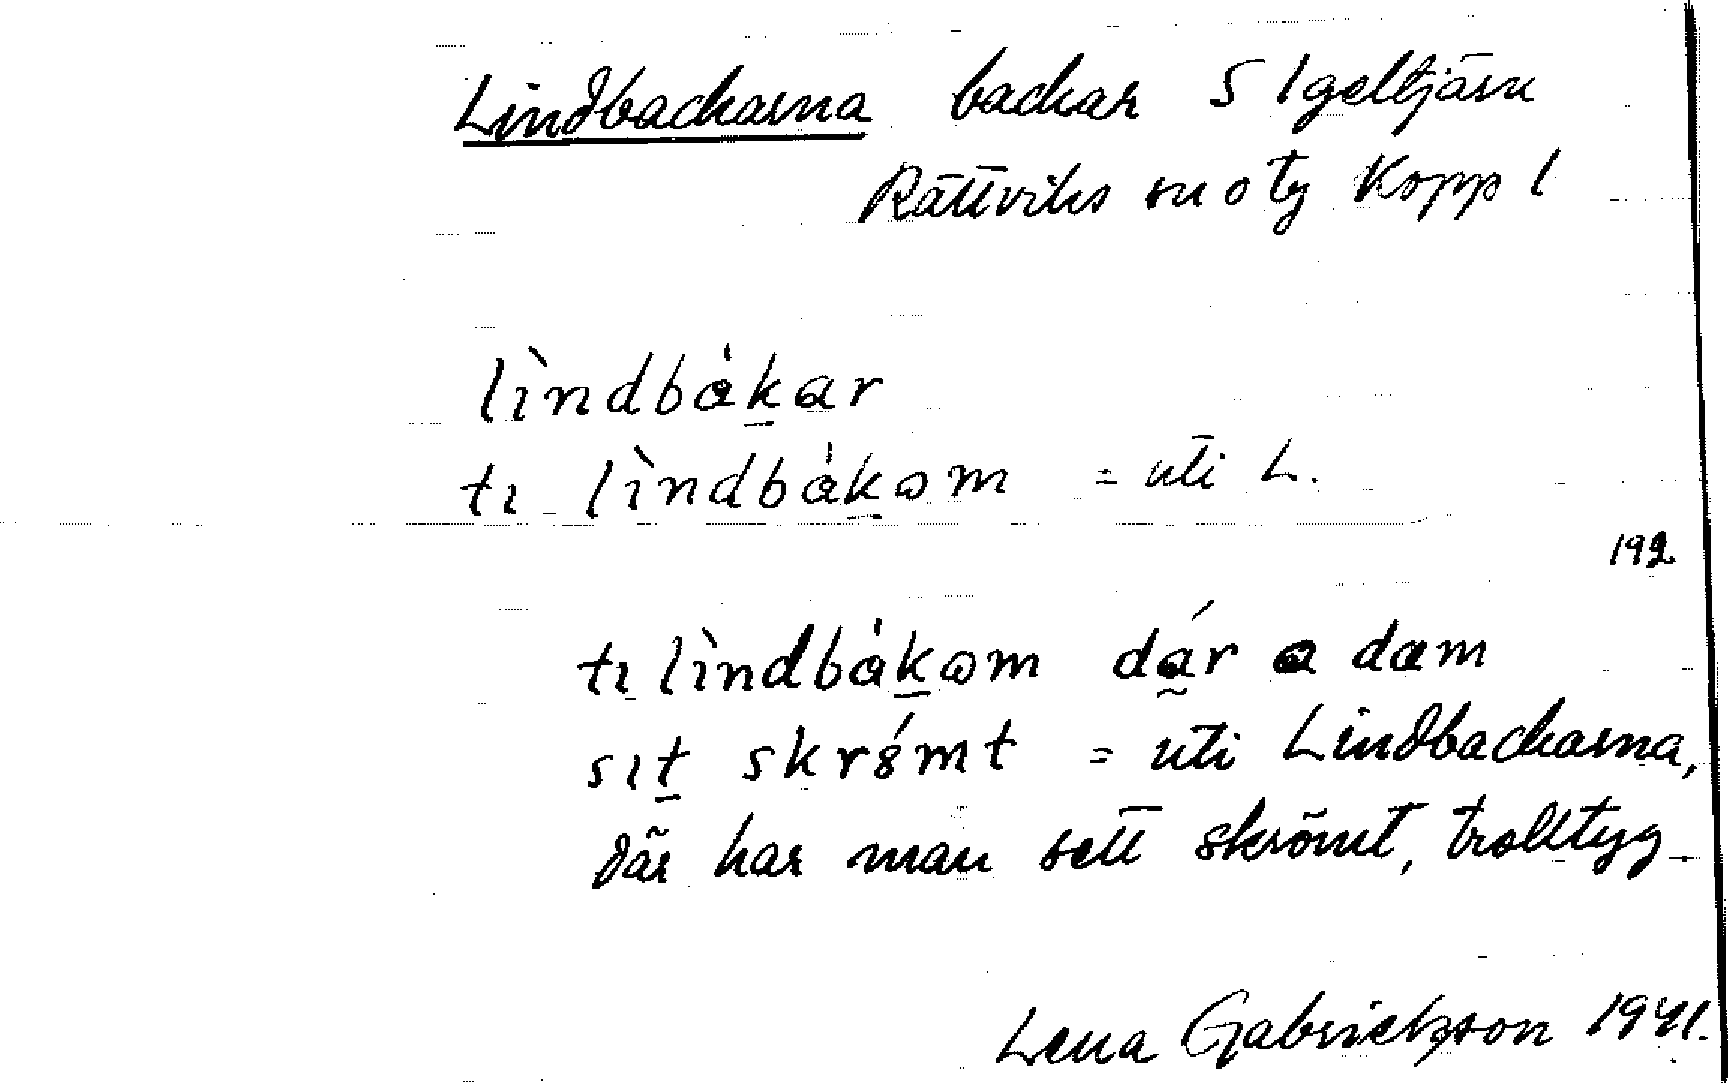 Lindbackarna backar S Igeltjärn
Rättviks sn o tg Kopp l
lìndbàkar
tı lìndbàkom = uti L.
192
tı lìndbàkom dár a dam
sıt skrǿmt = uti Lindbackarna,
där har man sett skrömt, trolltyg
Lena Gabrielsson 1941.